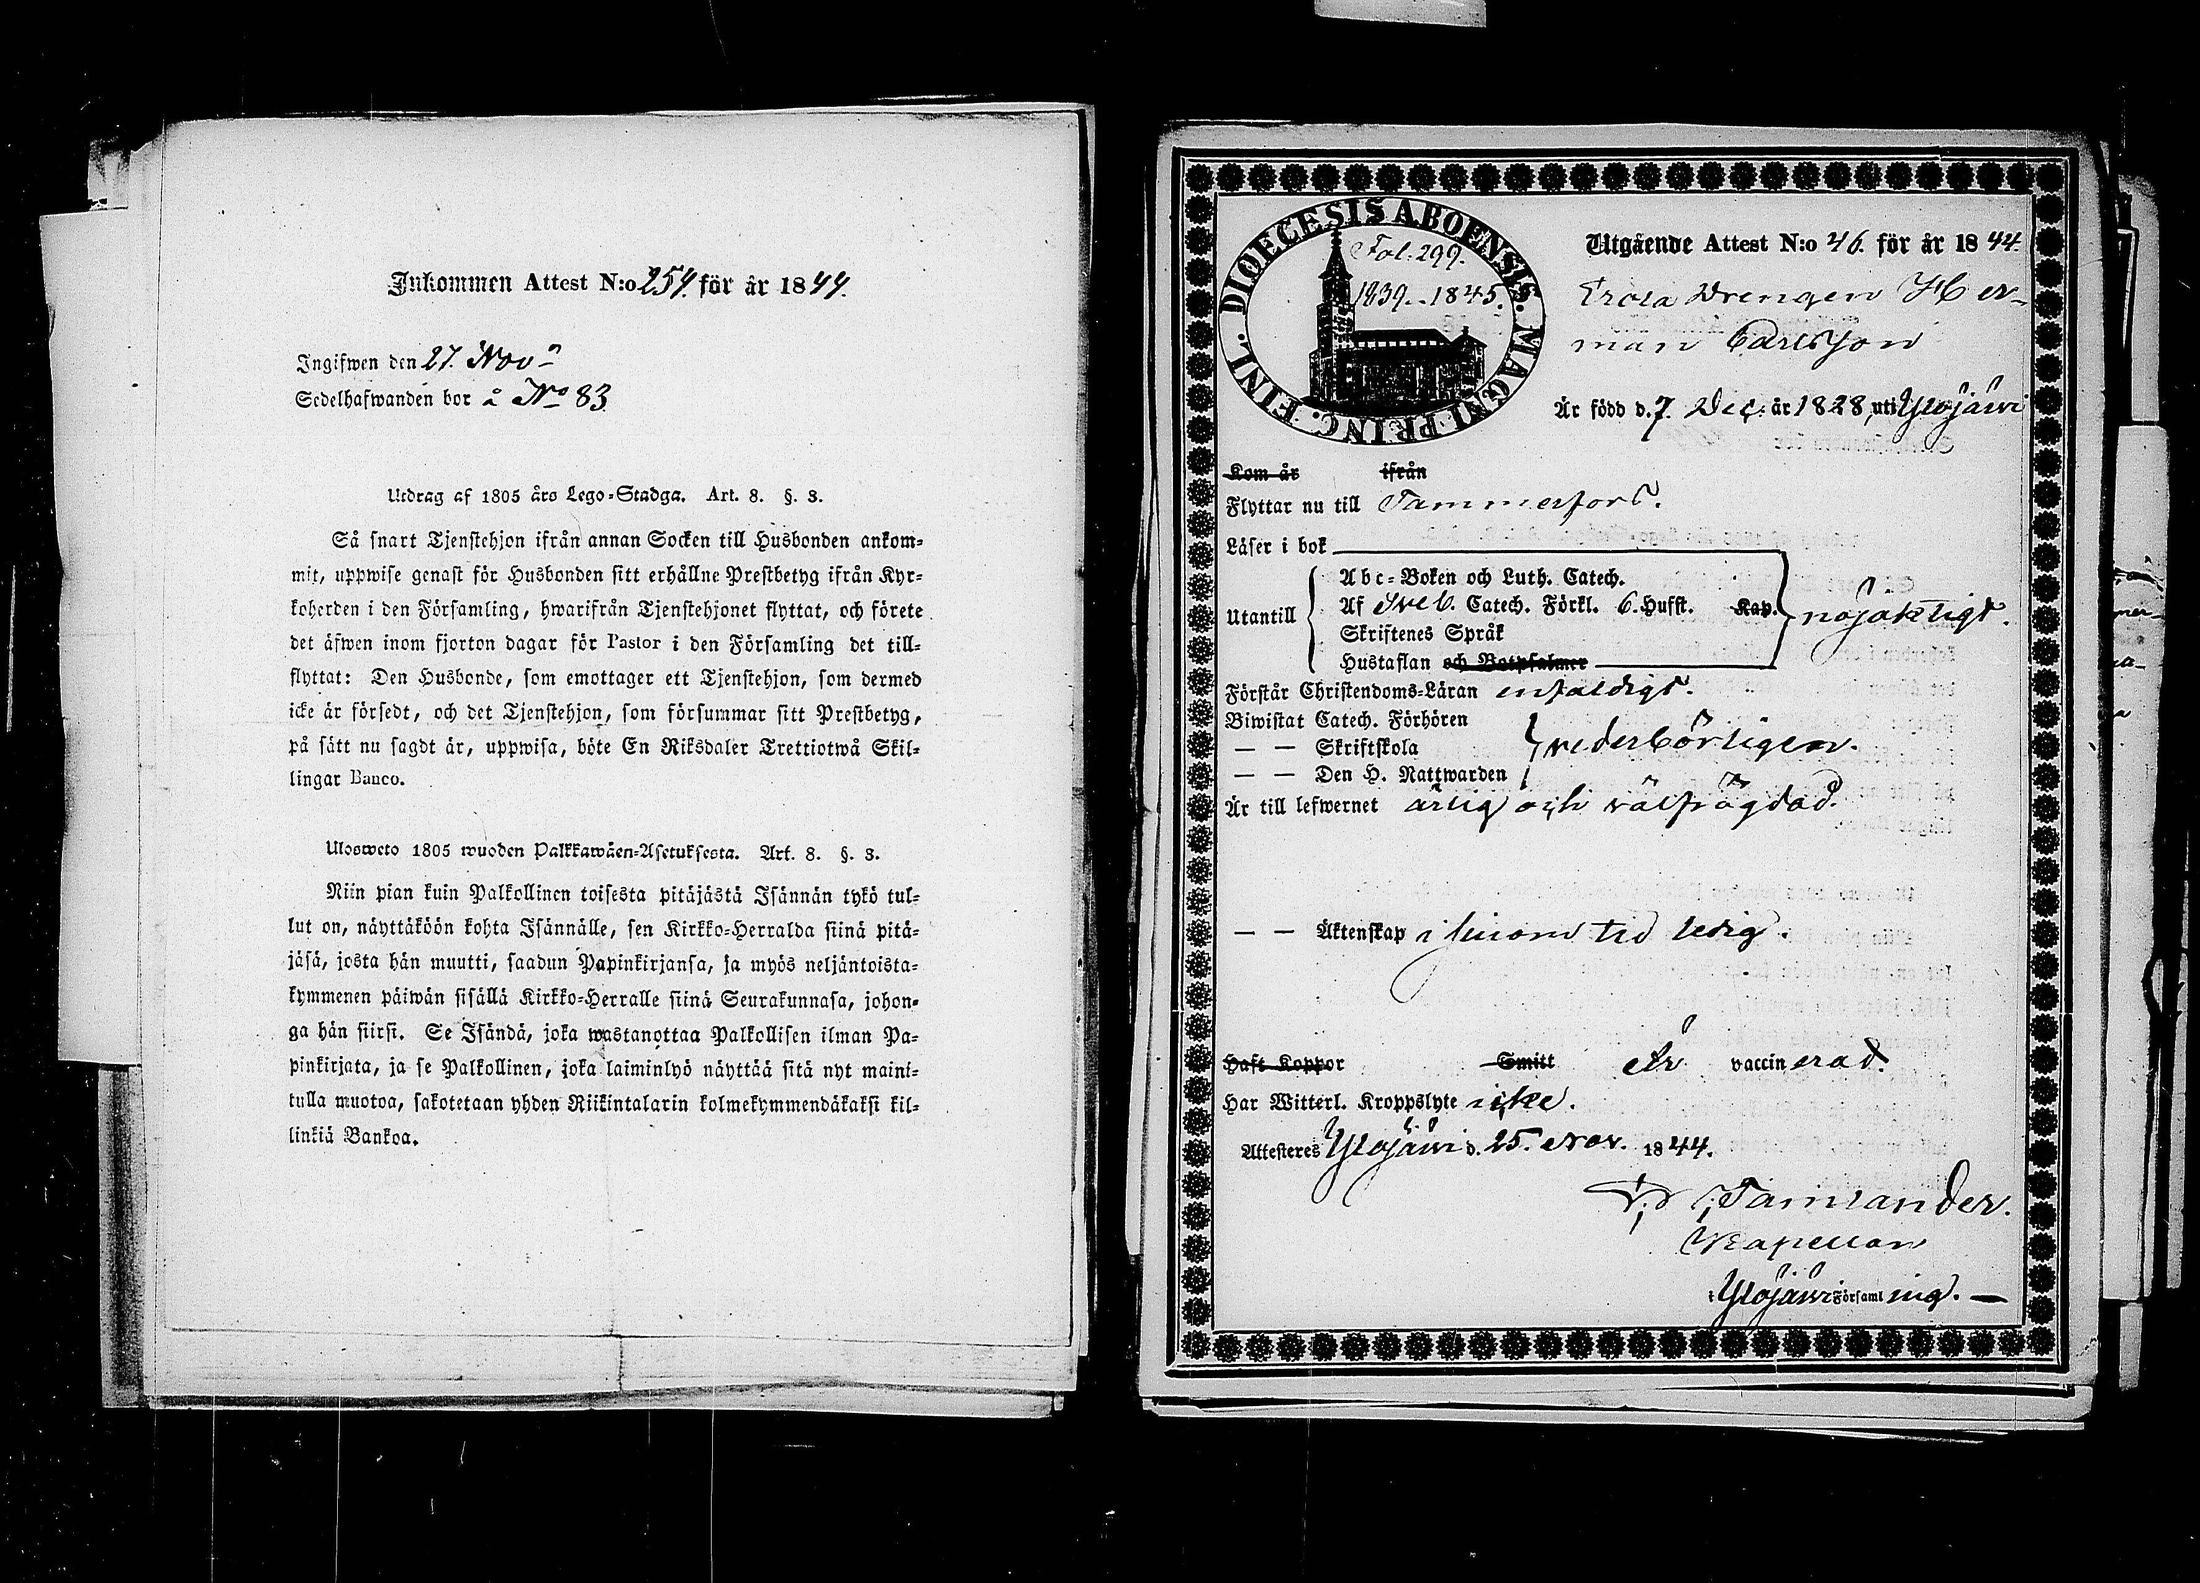 Inkommen Attest N:o 254. för år 1844.
Ingifwen den 27. Nov:
Sedelhafwanden bor å No 83
Utdrag af 1805 års Lego-Stadga. Art. 8. §. 3.
Så snart Tjenstehjon ifrån annan Socken till Husbonden ankom-
mit, uppwise genast för Husbonden sitt erhållne Prestbetyg ifrån Kyr-
koherden i den Församling, hwarifrån Tjenstehjonet flyttat, och förete
det äfwen inom fjorton dagar för Pastor i den Församling det till-
flyttat: Den Husbonde, som emottager ett Tjenstehjon, som dermed
icke är försedt, och det Tjenstehjon, som försummar sitt Prestbetyg,
på sätt nu sagdt är, uppwisa, böte En Riksdaler Trettiotwå Skil-
lingar Banco.
Ulosweto 1805 wuoden Palkkawäen-Asetuksesta. Art. 8. §. 3.
Niin pian kuin Palkollinen toisesta pitäjästä Isännän tykö tul-
lut on, näyttäköön kohta Isännälle, sen Kirkko-Herralda siinä pitä-
jäsä, josta hän muutti, saadun Papinkirjansa, ja myös neljäntoista-
kymmenen päiwän sisällä Kirkko-Herralle siinä Seurakunnasa, johon-
ga hän siirsi. Se Isändä, joka wastanottaa Palkollisen ilman Pa-
pinkirjata, ja se Palkollinen, joka laiminlyö näyttää sitä nyt maini-
tulla muotoa, sakotetaan yhden Riikintalarin kolmekymmendäkaksi kil-
linkiä Bankoa.
DIOECESIS ABOENSIS. MAGNI PRINC. FINL.
Fol. 299.
1839.-1845.
Utgående Attest N:o 46. för år 1844.
Drengen Her-
man Carlsson
Är född d. 7. Dec. år 1828, uti Ylöjärvi
Kom år ifrån
Flyttar nu till Tammerfors.
Läser i bok
Utantill
Abc-Boken och Luth. Catech.
Af Sveb. Catech. Förkl. 6. Hufst. Kap.
Skriftenes Språk
Hustaflan och Botpsalmer
nöjaktigt.
Förstår Christendoms-Läran enfaldigt.
Biwistat Catech. Förhören
— — Skriftskola
— — Den H. Nattwarden
vederbörligen.
Är till lefwernet ärlig och välfrägdad.
— — Äktenskap i hinom tid ledig.
Haft Koppor Smitt Är vaccinerad.
Har Witterl. Kroppslyte icke.
Attesteres Ylöjärvi d. 25. Nov. 1844.
Tamlander.
Kapellan
i Ylöjärvi Församling. —